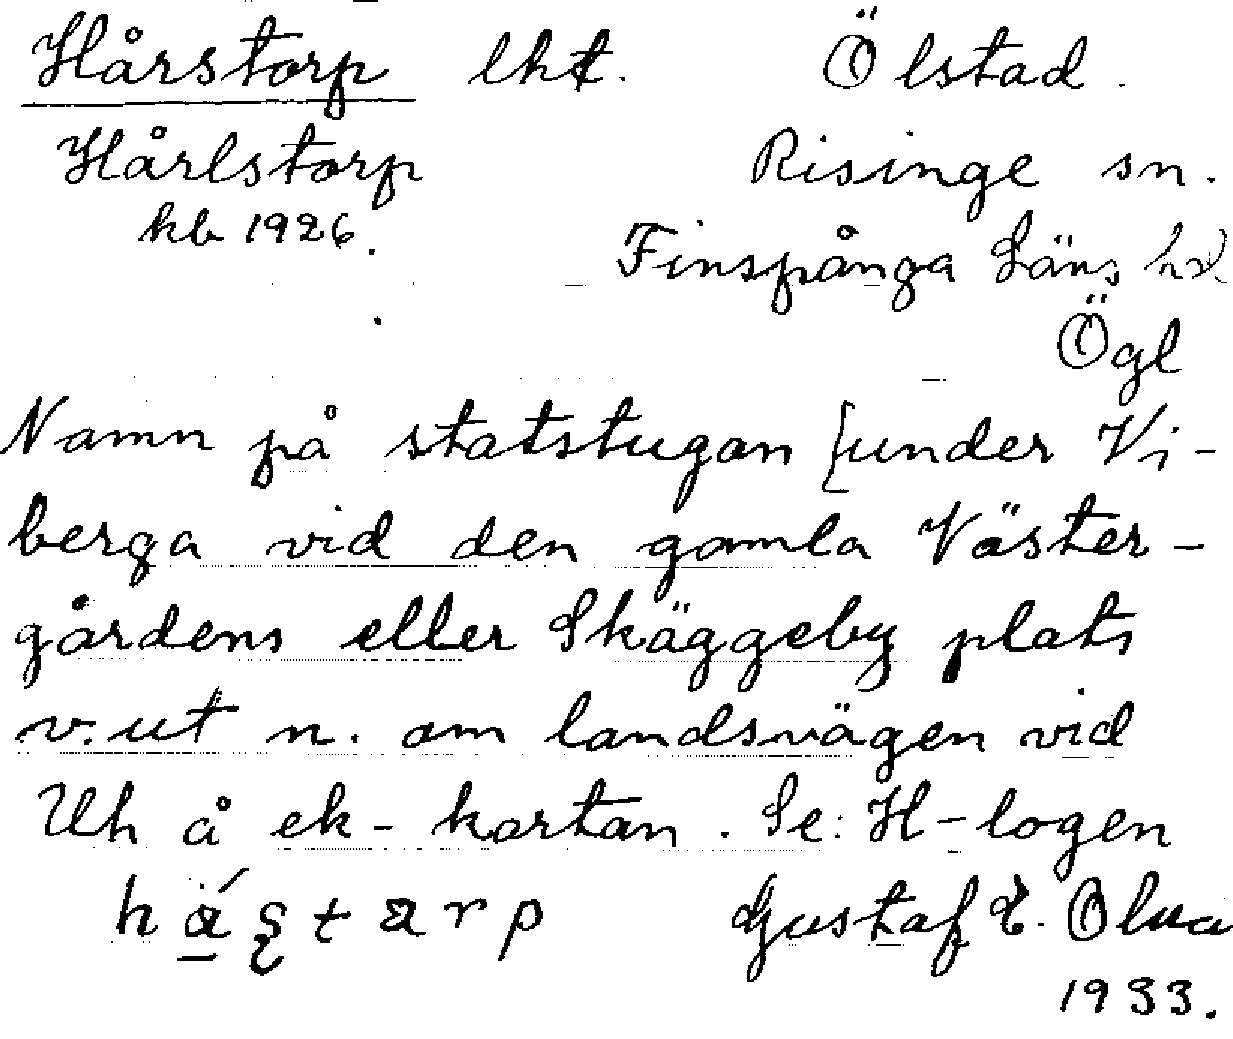 Hårstorp lht. Ölstad.
Hårlstorp Risinge sn.
kb 1926. Finspånga Läns hd.
Ögl
Namn på statstugan [under Vi-
berga vid den gamla Väster-
gårdens eller Skäggeby plats
v. ut n. om landsvägen vid
Uh å ek-kartan. Se: H-logen
Gustaf E. Olua
1933.